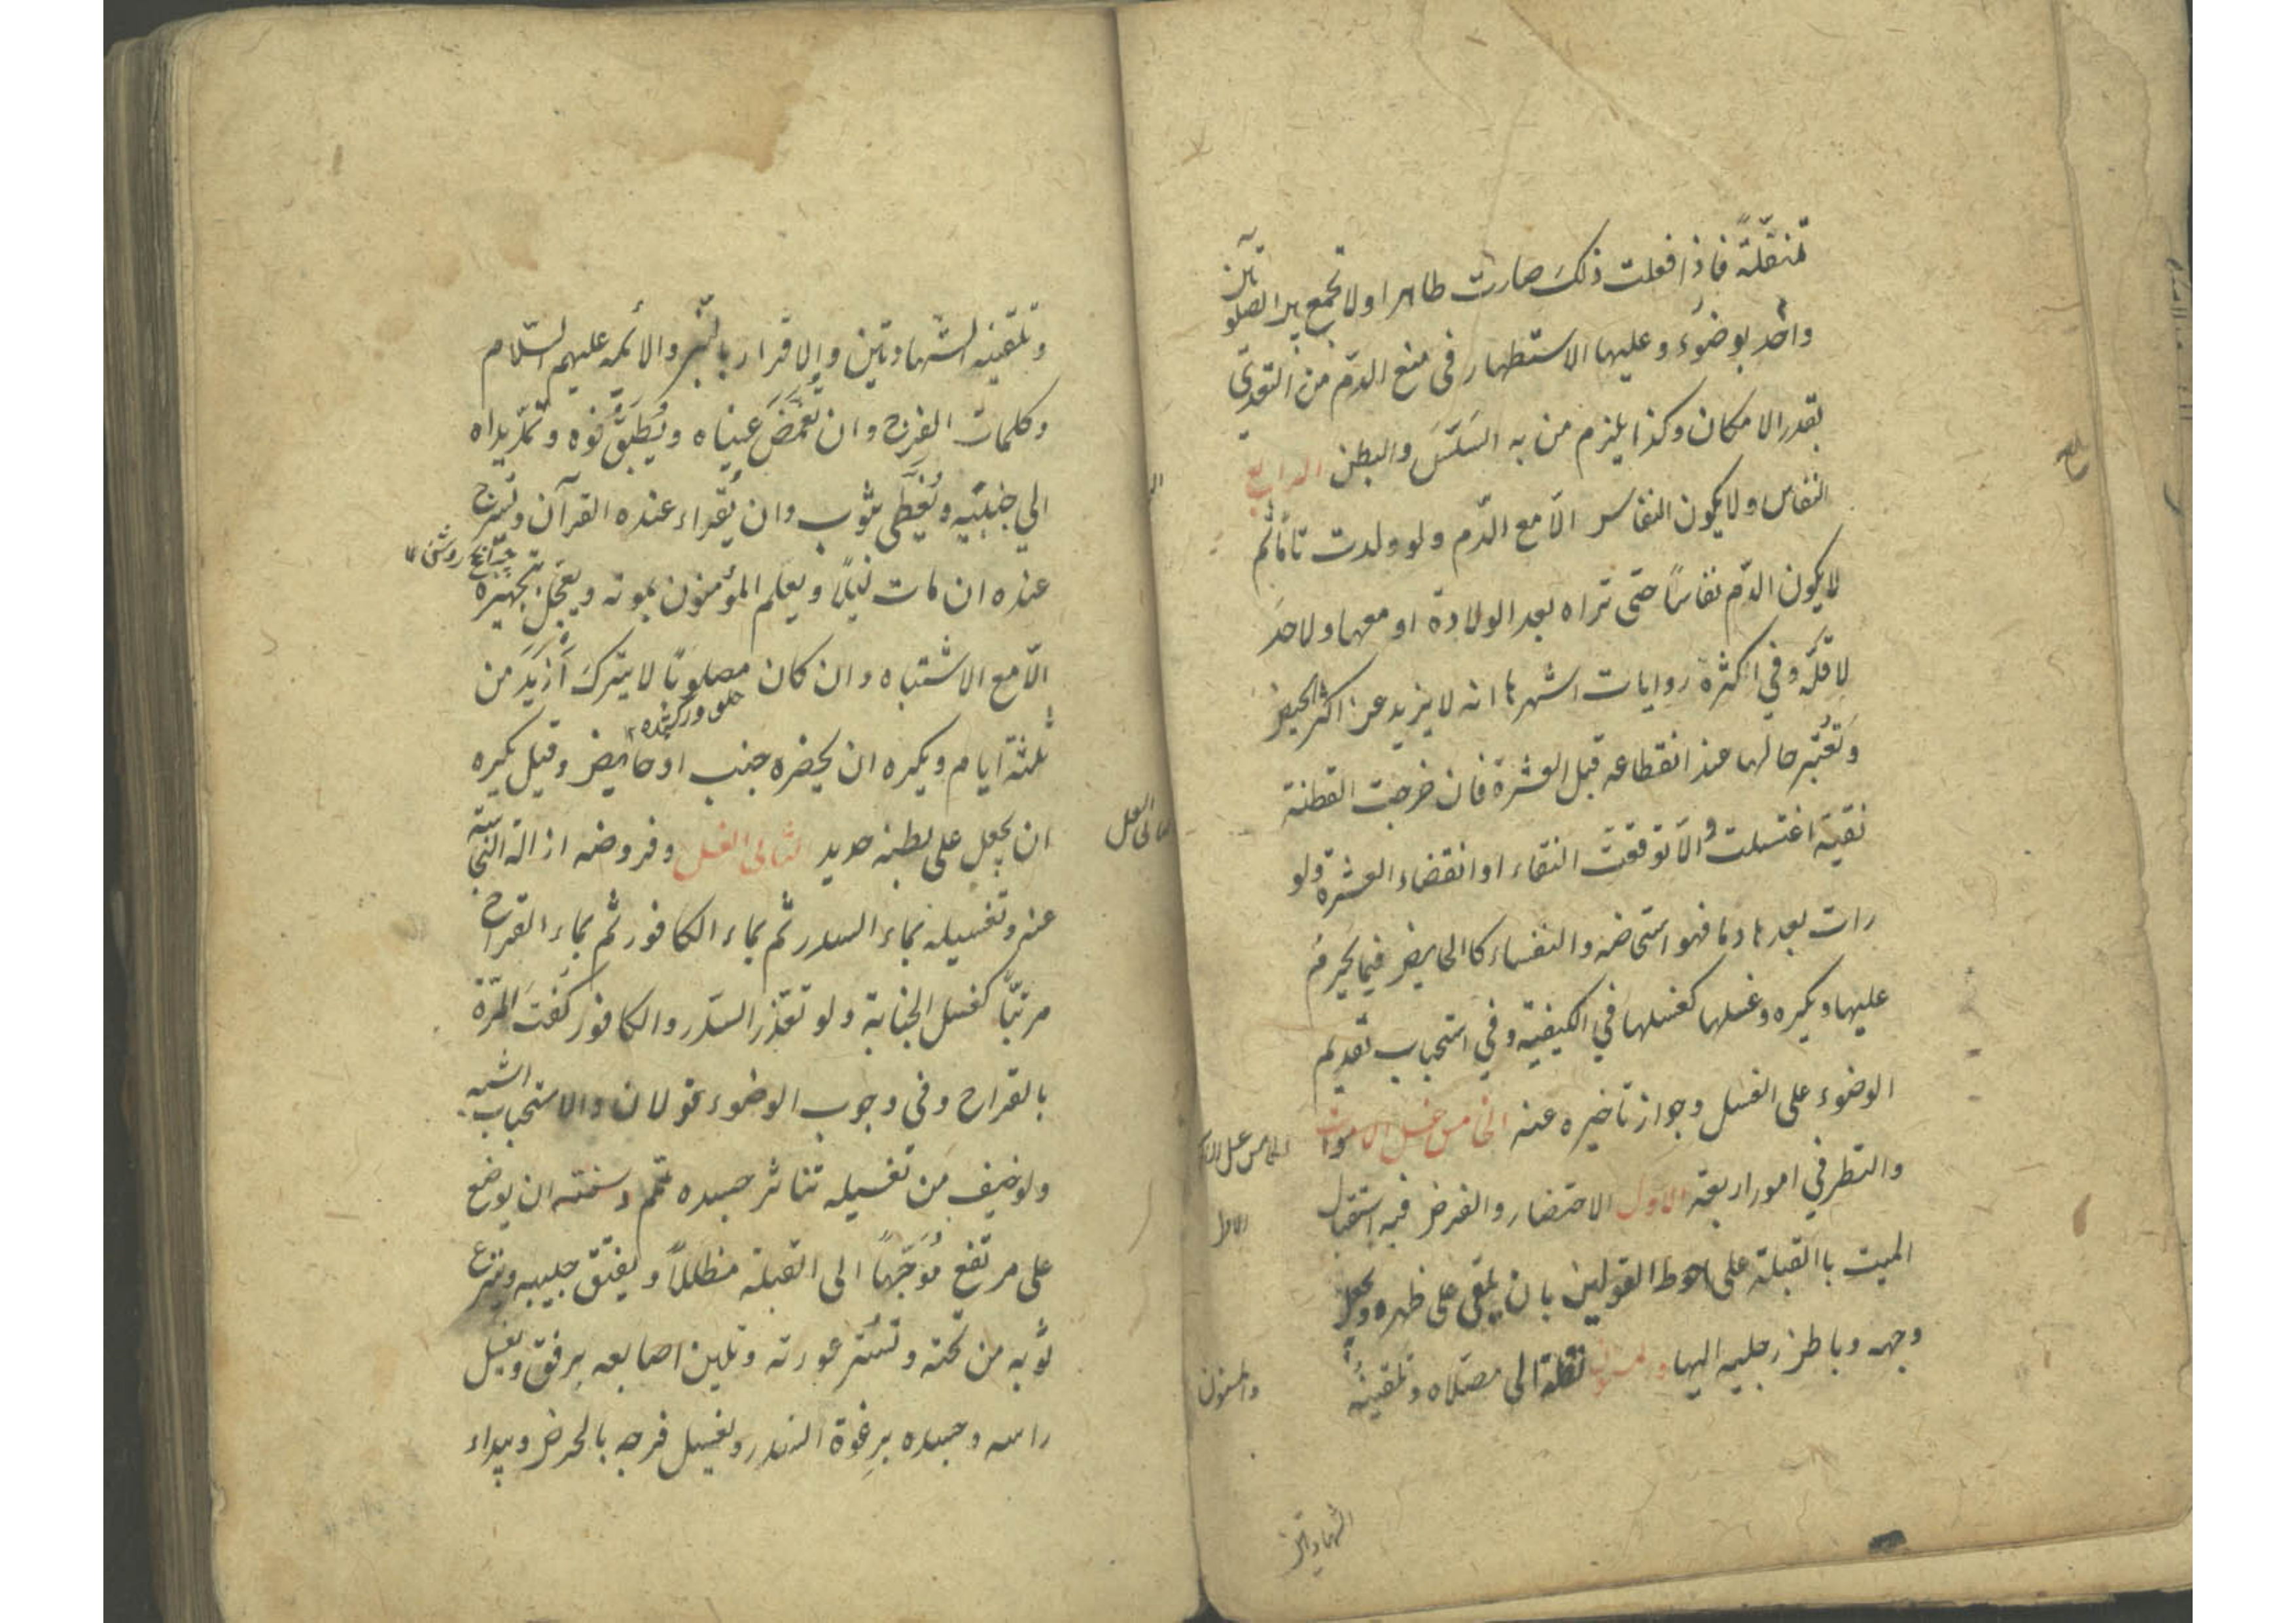 مثقلة فاذا فعلت ذلك صارت طاهرا ولا تجمع بين الصلوتين
واحد بوضوء وعليها الاستظهار في منع الدّم من التعدّي
بقدر الامكان وكذا يلزم من به السَلَسَ والبطن الرابع
النفاس ولا يكون النفاس الّا مع الدّم ولو ولدت تامّا ثم
لا يكون الدّم نفاسًا حتى تراه بعد الولادة او معها ولا حدَ
لاقلّه وفي اكثره روايات اشهرها انه لا يزيد عن اكثر الحيض
وتعتبر حالها عند انقطاعه قبل العشرة فان خرجت القطنة
نقية اغتسلت والّا توقعت النقاء او انقضاء العشرة ولو
رات بعدها دما فهو استحاضه والنفساء كالحايض فيما يحرم
عليها ويكره وغسلها كغسلها في الكيفية وفي استحباب تقديم
الوضوء على الغسل وجواز تاخيره عنه الخامس غسل الاموات
والنظر في امور اربعة الاول الاحتضار والفرض فيه استقبال
الميت باالقبلة على احوط القولين بان يلقى على ظهره ويجعل
وجهه وباطن رجليه اليها والمسنون نقله الى مصلّاه وتلقينه
الخامس غسل
الاول
والمسنون
الشهادتين
وتلقينه الشهادتين والاقرار بالنّبي والائمه عليهم السّلام
وكلمات الفرج وان تُغمَضَ عيناه ويُطبَقُ فوه وتمدّ يداه
الي جنبَيه ويُغطّى بثوب وان يُقراء عنده القرآن وتسرج
چراغ روشن
عنده ان مات ليلًا ويعلم المؤمنون بموته ويعجّل تجهيزه
الّا مع الاشتباه وان كان مصلوبًا لا يترك أزيَدَ من
ثلثة ايام ويكره ان يحضره جنب او حايض وقيل يكره
ان يجعل على بطنه حديد الثاني الغسل وفروضه ازالة النجاسة
الثاني الغسل
عنه وتغسيله بماء السدر ثم بماء الكافور ثم بماء القراح
مرتبًّا كغسل الجنابة ولو تعذّر السّدر والكافور كَفَت المرّة
بالقراح وفي وجوب الوضوء قولان والاستحباب اشبه
ولو خيف من تغسيله تناثر جسده تيمم وسننه ان يوضع
على مرتفع مُوَجّهًا الى القبلة مظللًا ويفتق جيبه وينزع
ثوبه من تحته وتُستر عورته وتلين اصابعه برفق ويغسل
راسه وجسده برغوة السدر ويغسل فرجه بالحرض ويبداء